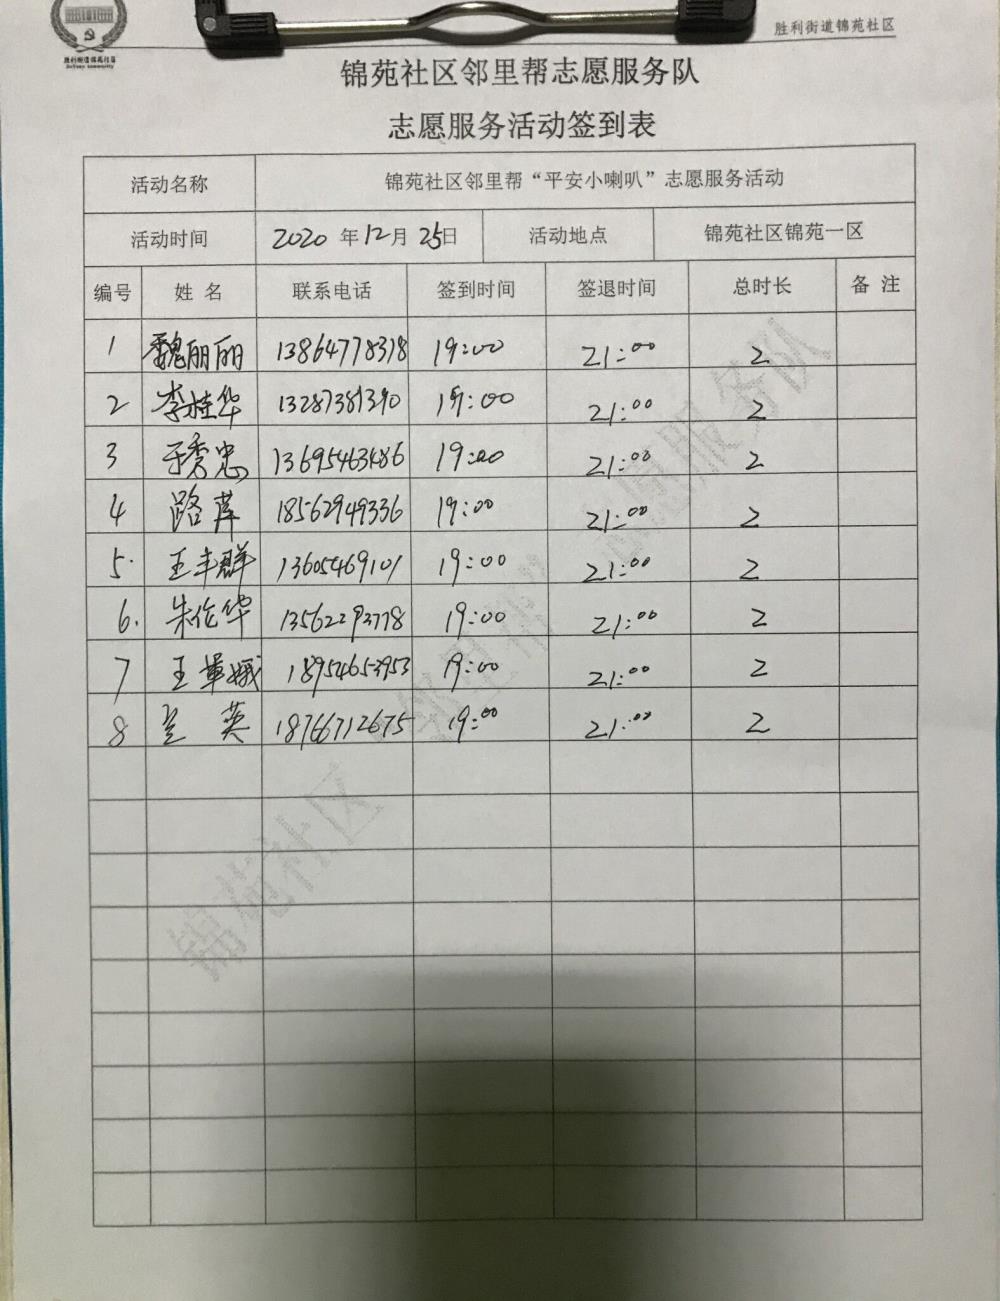 胜利街道锦苑社区
胜利街道锦苑社区
锦苑社区邻里帮志愿服务队
志愿服务活动签到表
活动名称 锦苑社区邻里帮“平安小喇叭”志愿服务活动
活动时间 2020 年 12 月 25 日 活动地点 锦苑社区锦苑一区
编号 姓 名 联系电话 签到时间 签退时间 总时长 备 注
1 魏丽丽 13864778318 19:00 21:00 2
2 李桂华 13287381390 19:00 21:00 2
3 于秀忠 13695463486 19:00 21:00 2
4 路萍 18562949336 19:00 21:00 2
5. 王丰群 13605469101 19:00 21:00 2
6. 朱伦华 13562293778 19:00 21:00 2
7 王 娥 18954653953 19:00 21:00 2
8 兰 英 18766712675 19:00 21:00 2
锦苑社区“邻里帮”志愿服务队